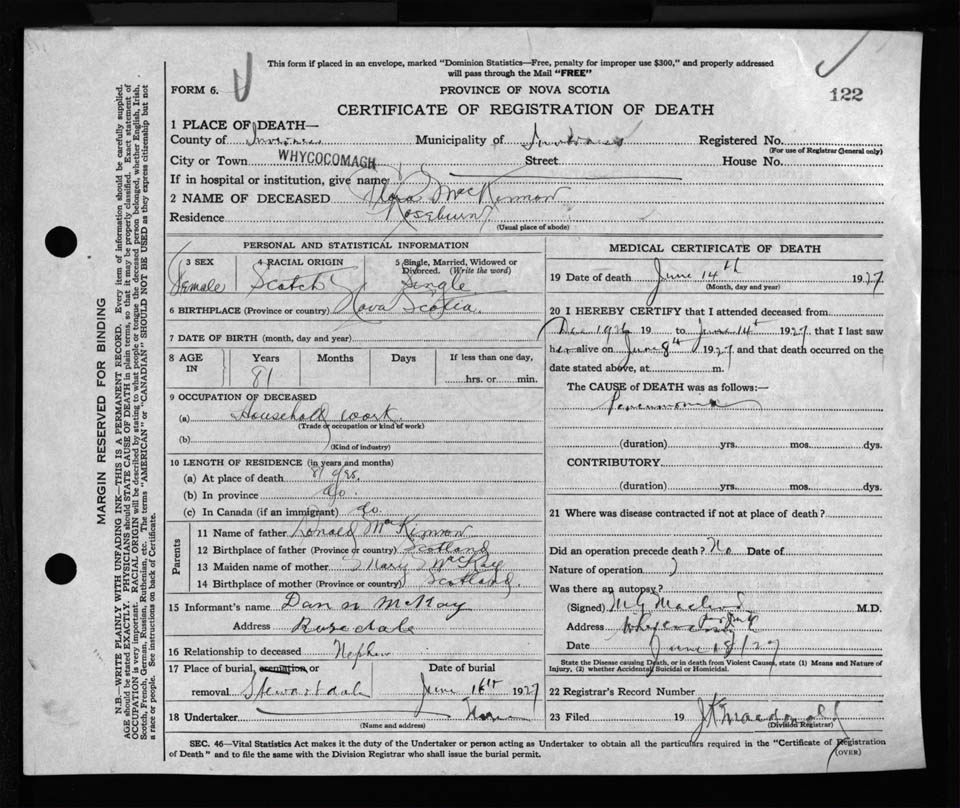 This form if placed in an envelope, marked "Dominion Statistics—Free, penalty for improper use $300," and properly addressed
will pass through the Mail "FREE"
FORM 6.
PROVINCE OF NOVA SCOTIA
122
CERTIFICATE OF REGISTRATION OF DEATH
1 PLACE OF DEATH—
County of Inverness Municipality of Inverness Registered No.
(For use of Registrar General only)
City or Town WHYCOCOMAGH Street House No.
If in hospital or institution, give name
2 NAME OF DECEASED Flora MacKinnon
Residence Roseburn
(Usual place of abode)
PERSONAL AND STATISTICAL INFORMATION
3 SEX 4 RACIAL ORIGIN 5 Single, Married, Widowed or Divorced. (Write the word)
Female Scotch Single
6 BIRTHPLACE (Province or country) Nova Scotia
7 DATE OF BIRTH (month, day and year)
8 AGE IN Years Months Days If less than one day,
81 hrs. or min.
9 OCCUPATION OF DECEASED
(a) Household work
(Trade or occupation or kind of work)
(b)
(Kind of industry)
10 LENGTH OF RESIDENCE (in years and months)
(a) At place of death 81 yrs.
(b) In province do.
(c) In Canada (if an immigrant) do.
Parents
11 Name of father Donald McKinnon
12 Birthplace of father (Province or country) Scotland
13 Maiden name of mother Mary McKay
14 Birthplace of mother (Province or country) Scotland.
15 Informant's name Dan N McKay
Address Rosedale
16 Relationship to deceased Nephew
17 Place of burial, cremation, or Date of burial
removal Stewartdale June 16th 1927
18 Undertaker None
(Name and address)
MEDICAL CERTIFICATE OF DEATH
19 Date of death June 14th 1927
(Month, day and year)
20 I HEREBY CERTIFY that I attended deceased from
Dec 1926 19 to June 14th 1927 that I last saw
her alive on June 8th 1927 and that death occurred on the
date stated above, at m.
The CAUSE of DEATH was as follows:—
Pneumonia
(duration) yrs. mos. dys.
CONTRIBUTORY
(duration) yrs. mos. dys.
21 Where was disease contracted if not at place of death?
Did an operation precede death? No Date of
Nature of operation
Was there an autopsy?
(Signed) M G MacLeod M.D.
Address
Date June 18/27
State the Disease causing Death, or in death from Violent Causes, state (1) Means and Nature of
Injury, (2) whether Accidental, Suicidal or Homicidal.
22 Registrar's Record Number
23 Filed 19 Macdonald
(Division Registrar)
SEC. 46—Vital Statistics Act makes it the duty of the Undertaker or person acting as Undertaker to obtain all the particulars required in the "Certificate of Registration
of Death" and to file the same with the Division Registrar who shall issue the burial permit.
(OVER)
MARGIN RESERVED FOR BINDING
N.B.—WRITE PLAINLY WITH UNFADING INK—THIS IS A PERMANENT RECORD. Every item of information should be carefully supplied.
AGE should be stated EXACTLY. PHYSICIANS should STATE CAUSE OF DEATH in plain terms, so that it may be properly classified. Exact statement of
OCCUPATION is very important. RACIAL ORIGIN will be described by stating to what people or tongue the deceased person belonged, whether English, Irish,
Scotch, French, German, Russian, Ruthenian, etc. The terms "AMERICAN" or "CANADIAN" SHOULD NOT BE USED as they express citizenship but not
a race or people. See instructions on back of Certificate.